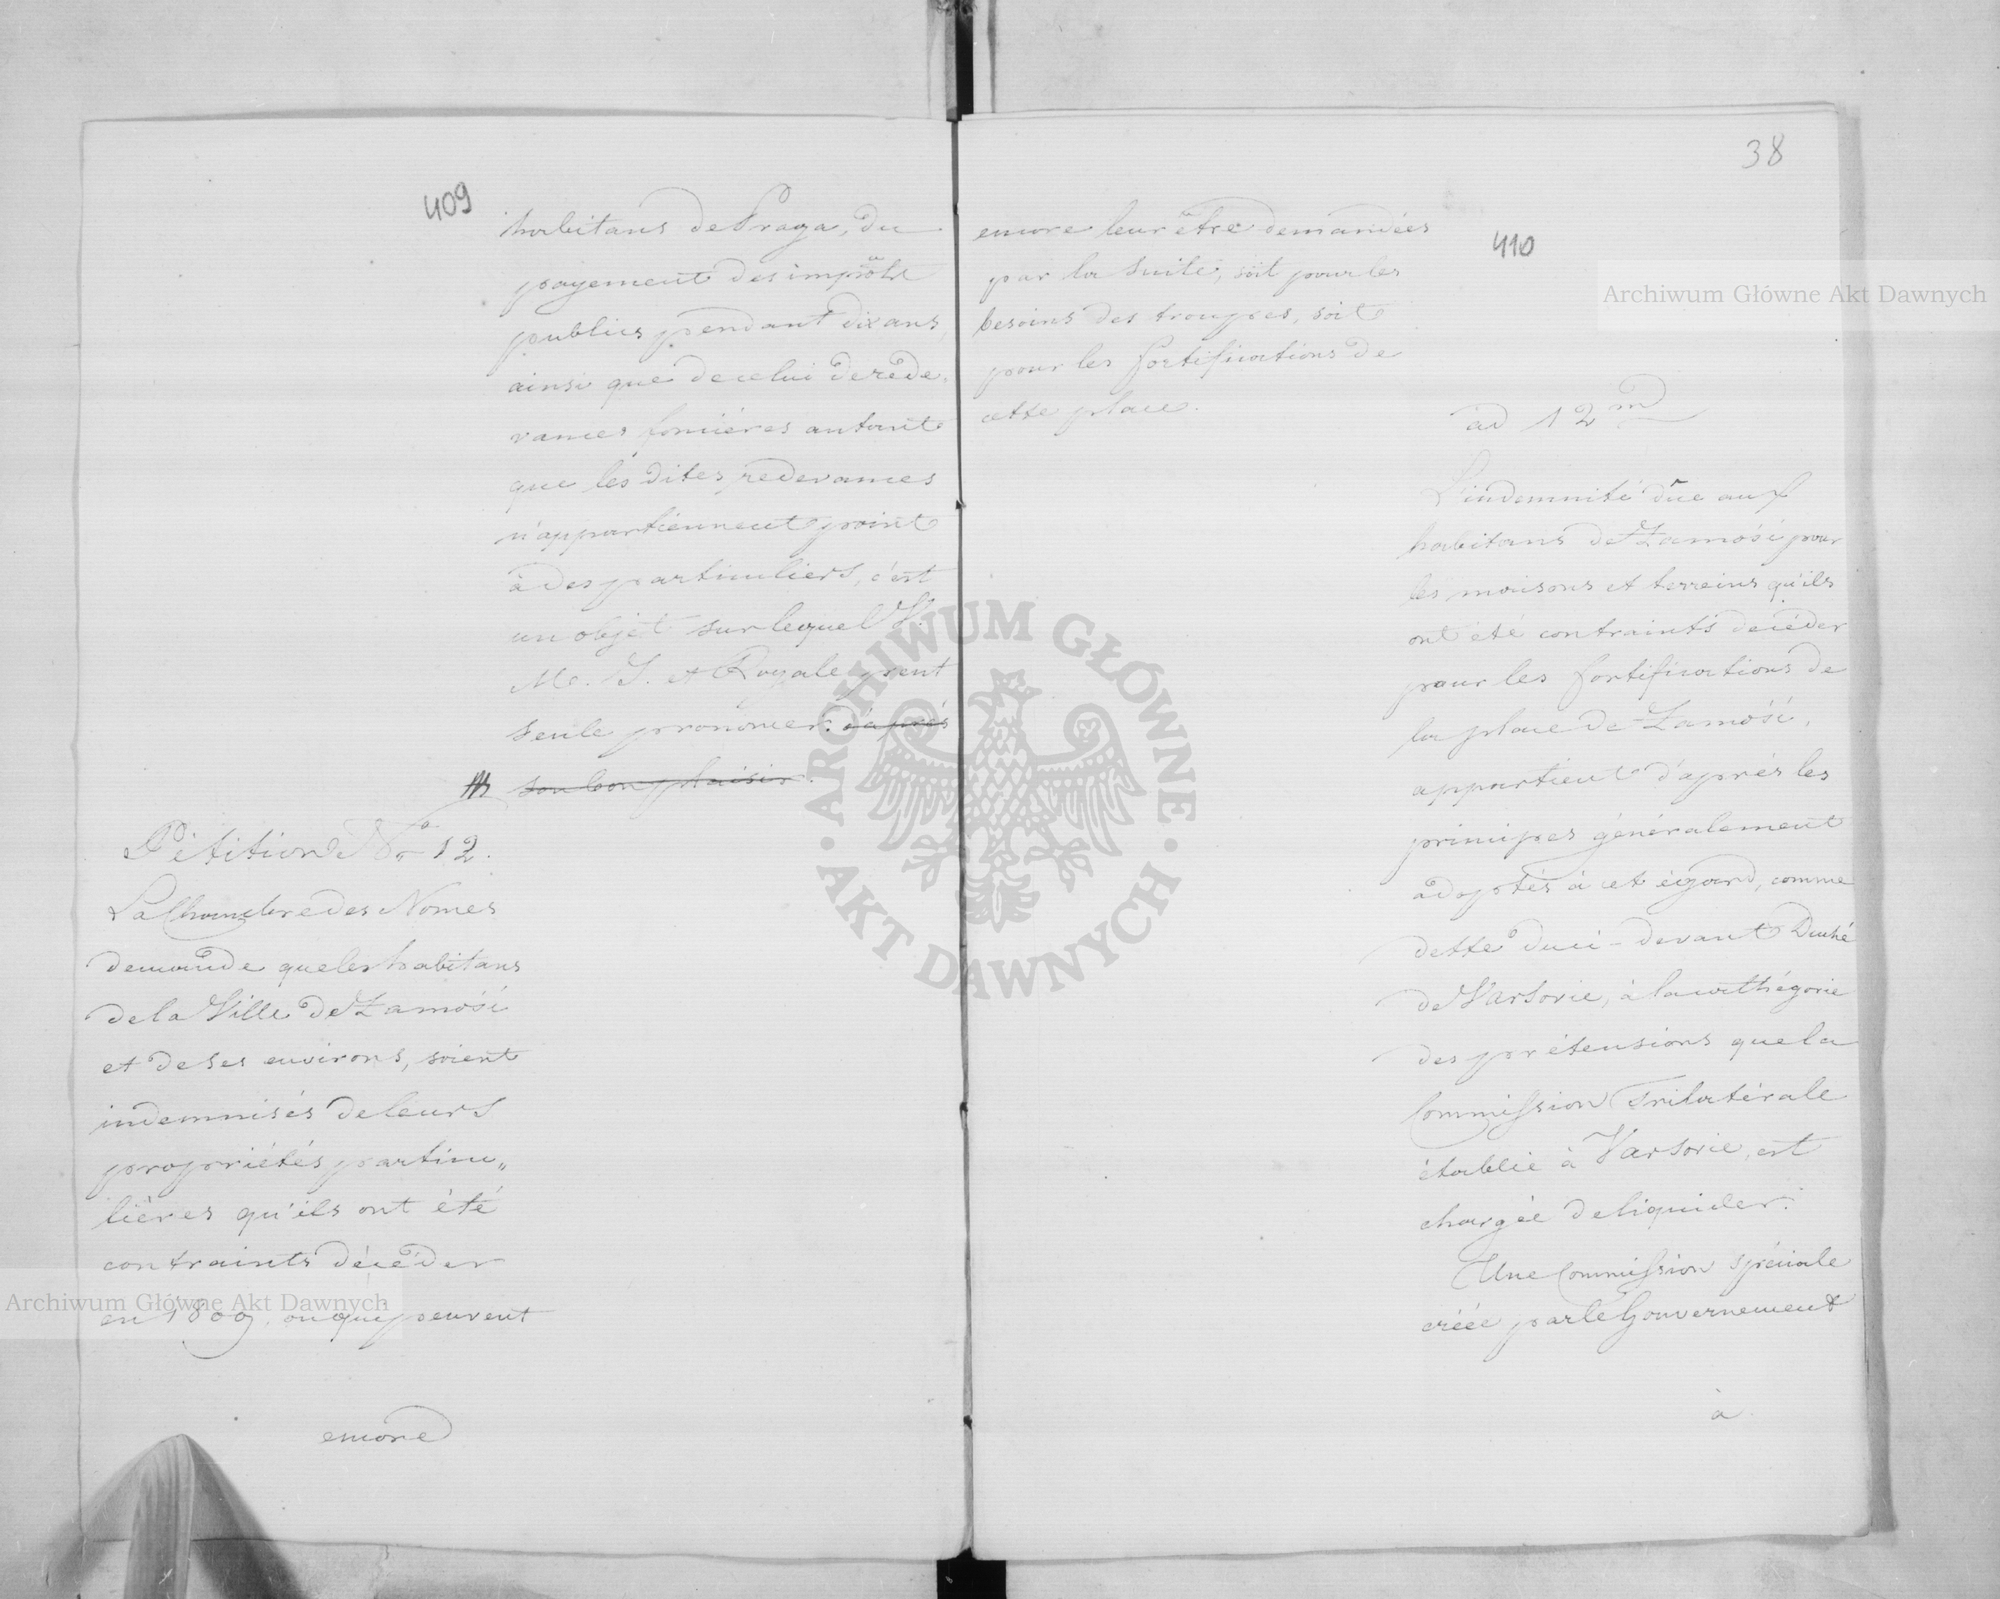 409
habitans de Praga, du
payement des impôts
publics pendant dix ans,
ainsi que de celui de réde-
vances foncières autant
que les dites redevances
n'appartiennent point
à des particuliers, c'est
un objet sur lequel V.
M. I. et Royale peut
seule prononcer. d'après
son bon plaisir.
Pétition No 12.
La Chambre des Nonces
demande que les habitans
de la Ville de Zamość
et de ses environs, soient
indemnisés de leurs
propriétés particu„
lières qu'ils ont été
contraints de céder
en 1809, ou qui peuvent
encore
38
410
encore leur être demandées
par la suite, soit pour les
besoins des troupes, soit
pour les fortifications de
cette place.
ad 12m
L'indemnité düe aux
habitans de Zamość pour
les maisons et terreins qu'ils
ont été contraints de céder
pour les fortifications de
la place de Zamość,
appartient d'après les
principes généralement
adoptés à cet égard, comme
dette du ci-devant Duché
de Varsovie, à la cathégorie
des prétensions que la
Commission Trilatérale
établie à Varsovie, est
chargée de liquider.
Une Commission spéciale
créée par le Gouvernement
à
Archiwum Główne Akt Dawnych
Archiwum Główne Akt Dawnych
ARCHIWUM GŁÓWNE · AKT DAWNYCH ·